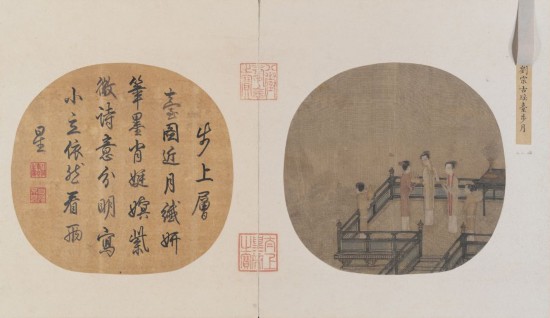 劉宗古瑤臺步月
步上層
臺固近月纖妍
筆墨肖娗嫇紫
微詩意分明寫
小立依然看兩
星